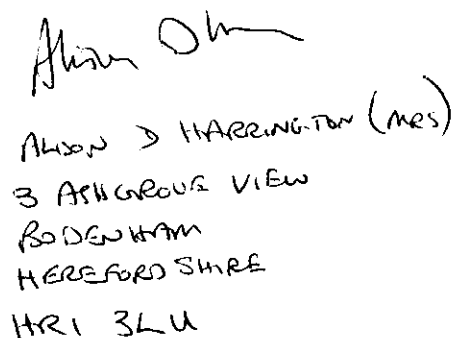 Alison
ALISON D HARRINGTON (MRS)
3 ASHGROVE VIEW
BODENHAM
HEREFORDSHIRE
HR1 3LU